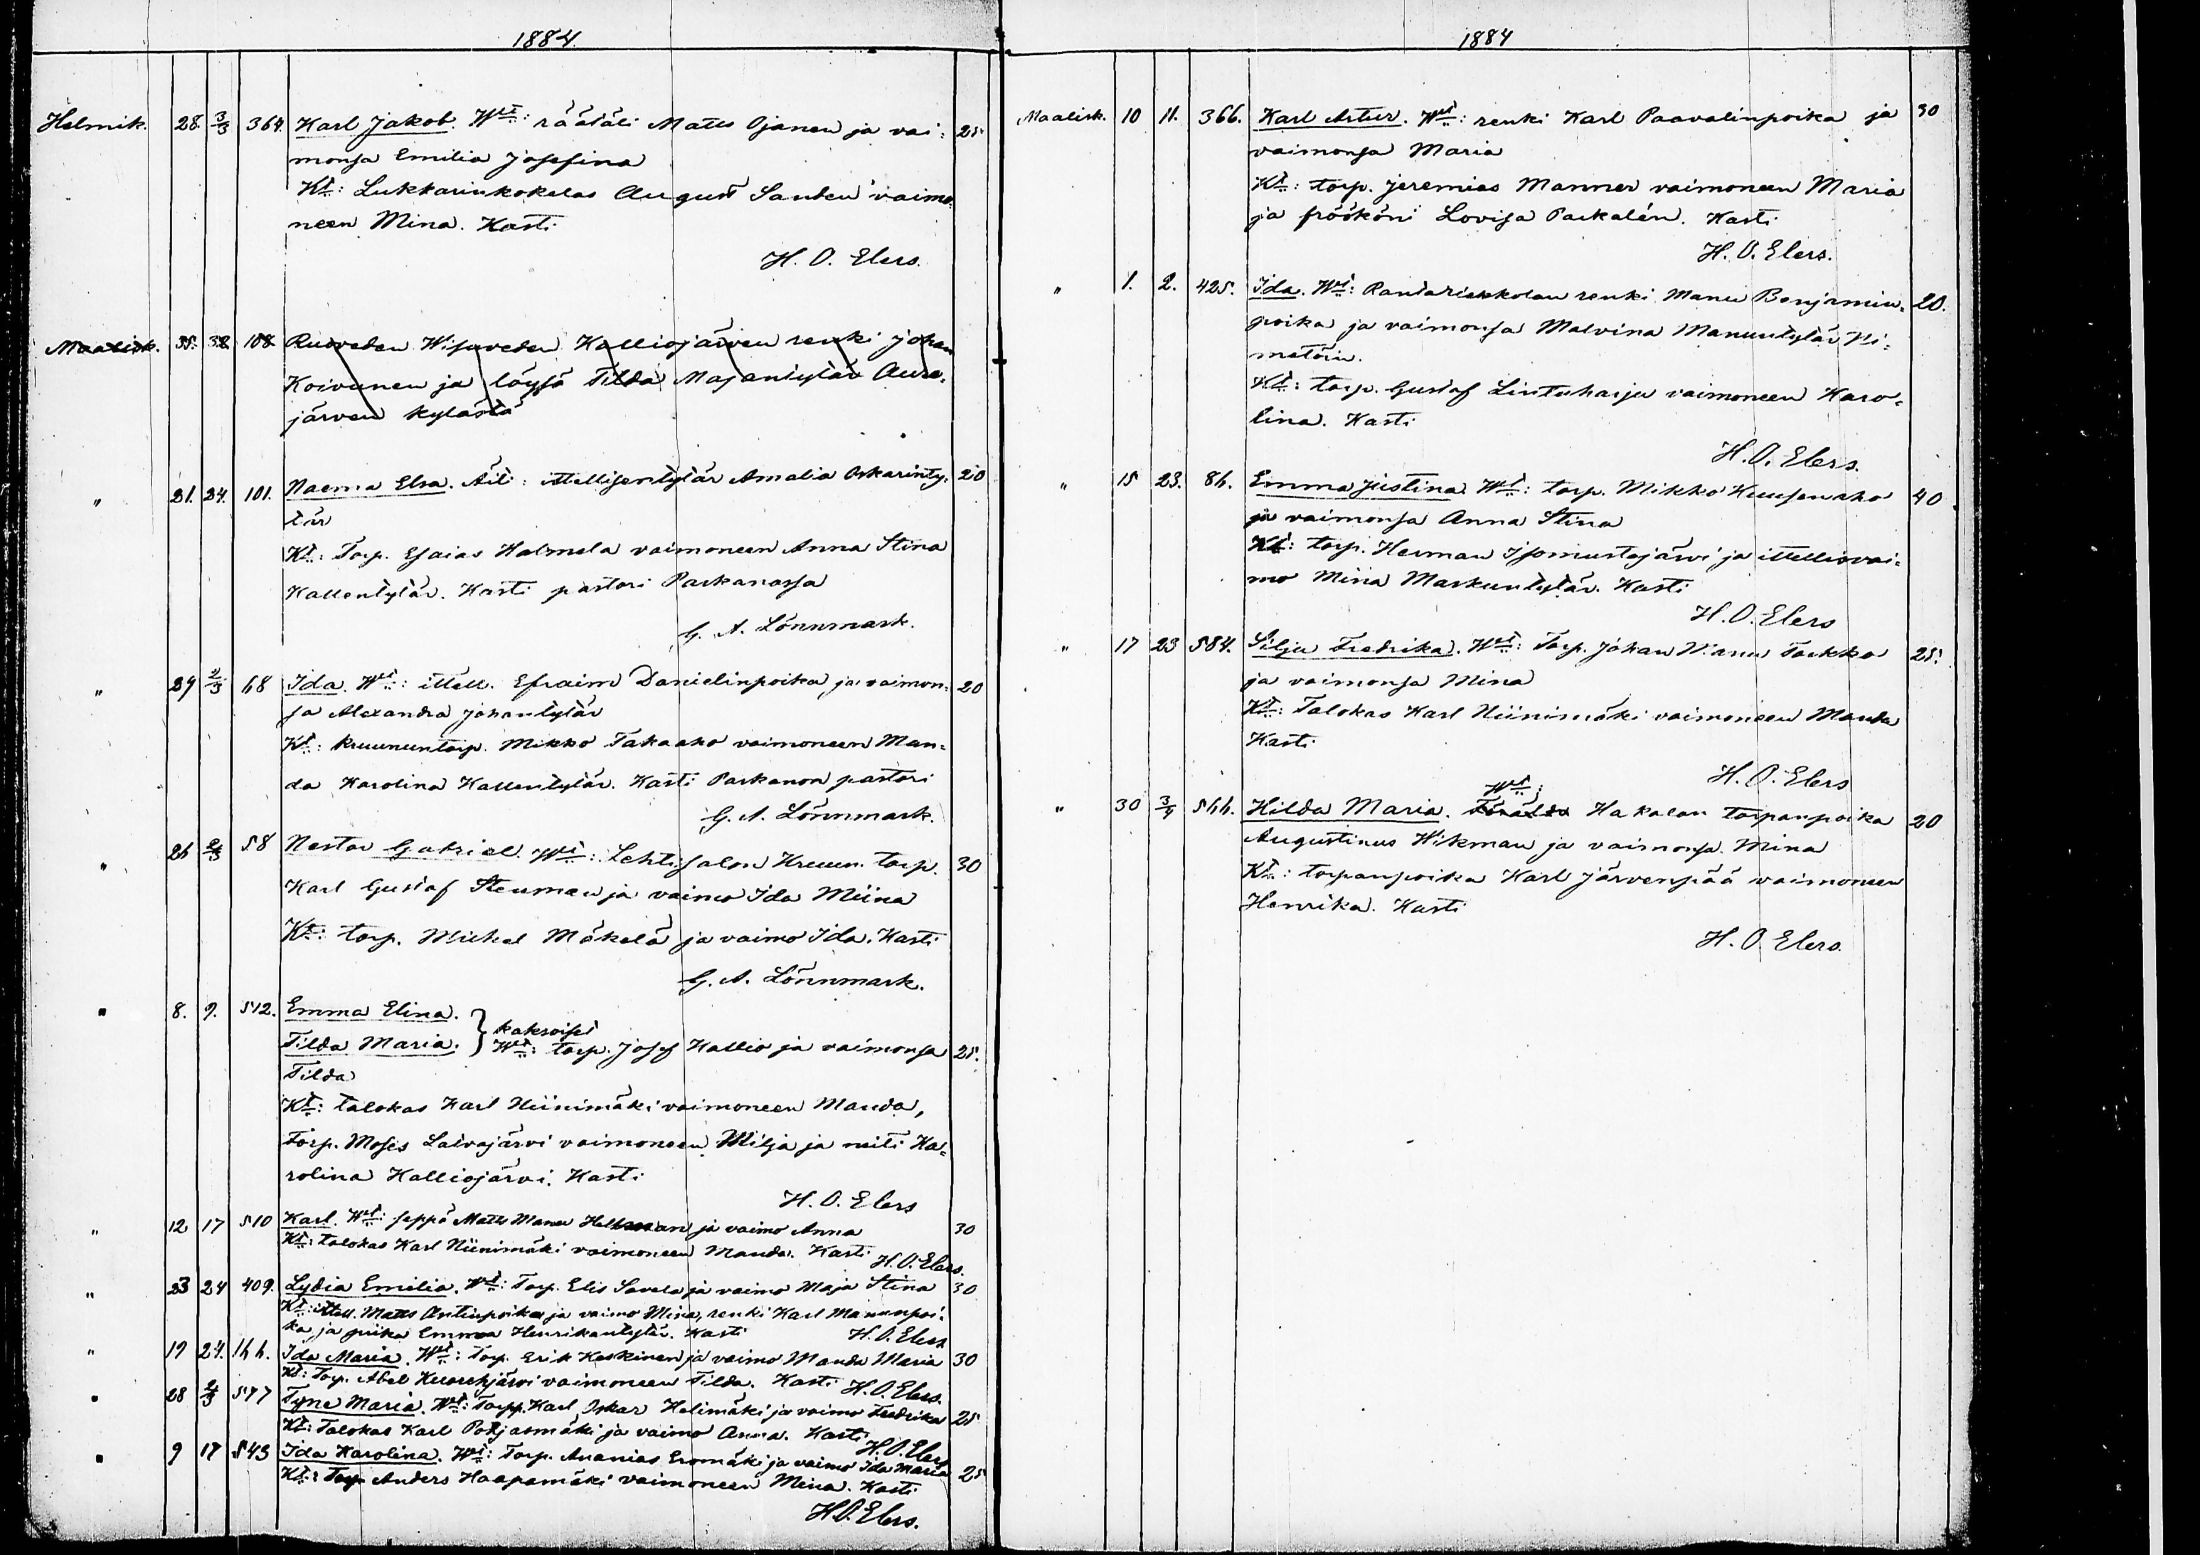 1884.
Helmik. 28. 3/3 364. Karl Jakob. Wt: räätäli Matts Ojanen ja vai- 25
monsa Emilia Josefina
Kt: Lukkarinkokelas August Sanden vaimo-
neen Mina. Kasti
H. O. Elers.
Maalisk. 108. Ruoveden Wisuveden Kalliojärven renki Johan
Koivunen ja löysä Tilda Majantytär Aure-
järven kylästä
" 21. 24. 101. Naema Elsa. Äiti: ittellisentytär Amalia Oskarinty- 20
tär
Kt: Torp. Esaias Halmela vaimoneen Anna Stina
Kallentytär. Kasti pastori Parkanossa
G. A. Lönnmark.
" 29 2/3 68 Ida. Wt: ittell. Efraim Danielinpoika ja vaimon- 20
sa Alexandra Johantytär
Kt: kruununtorp. Mikko Takaaho vaimoneen Man-
da Karolina Kallentytär. Kasti Parkanon pastori
G. A. Lönnmark.
" 26 2/3 58 Nestor Gabriel. Wt: Lehtisalon Kruun. torp. 30
Karl Gustaf Stenman ja vaimo Ida Miina
Kt: torp. Mikel Mäkelä ja vaimo Ida. Kasti
G. A. Lönnmark.
" 8. 9. 512. Emma Elina.
kaksoiset
Tilda Maria. } Wt: torp. Josef Kallio ja vaimonsa 25.
Tilda
Kt: talokas Karl Niinimäki vaimoneen Manda,
Torp. Moses Laivajärvi vaimoneen Milja ja neiti Ka-
rolina Kalliojärvi. Kasti
H. O. Elers
" 12 17 510 Karl. Wt: seppä Matts Manu Hellman ja vaimo Anna 30
Kt: talokas Karl Niinimäki vaimoneen Manda. Kasti H. O. Elers.
" 23 24 409. Lydia Emilia. Wt: Torp. Elis Savela ja vaimo Maja Stina 30
Kt: ittell. Matts Antinpoika ja vaimo Mina, renki Karl Manunpoi-
ka ja piika Emma Henrikantytär. Kasti H. O. Elers
" 19 24. 166. Ida Maria. Wt: Torp. Erik Koskinen ja vaimo Manda Maria 30
Kt: Torp. Abel Kuorehjärvi vaimoneen Tilda. Kasti H. O. Elers.
" 28 2/3 577 Tyne Maria. Wt: Torp. Karl Oskar Helimäki ja vaimo Fredrika 25
Kt: Talokas Karl Pohjasmäki ja vaimo Anna. Kasti H. O. Elers
" 9 17 543 Ida Karolina. Wt: Torp. Ananias Eromäki ja vaimo Ida Maria 25
Kt: Torp Anders Haapamäki vaimoneen Mina. Kasti
H. O. Elers.
1884
Maalisk. 10 11. 366. Karl Artur. Wt: renki Karl Paavalinpoika ja 30
vaimonsa Maria
Kt: torp. Jeremias Manner vaimoneen Maria
ja fröököni Lovisa Parkalén. Kasti
H. O. Elers.
" 1. 2. 425. Ida. Wt: renki Manu Benjamin- 20.
poika ja vaimonsa Malvina Manuntytär Ni-
metöin.
Kt: torp. Gustaf Lintuharju vaimoneen Karo-
lina. Kasti
H. O. Elers.
" 15 23. 86. Emma Justina. Wt: torp. Mikko Kuusenaho 40
ja vaimonsa Anna Stina
Kt: torp. Herman Isomustajärvi ja ittellisvai-
mo Miina Markuntytär. Kasti
H. O. Elers
" 17 23 584. Silja Fredrika. Wt: Torp. Johan Manu Torkko 25.
ja vaimonsa Mina
Kt: Talokas Karl Niinimäki vaimoneen Manda
Kasti
H. O. Elers
Wt:
" 30 3/4 566. Hilda Maria. Hakalan torpanpoika 20
Augustinus Wikman ja vaimonsa Mina
Kt: torpanpoika Karl Järvenpää vaimoneen
Henrika. Kasti
H. O. Elers.